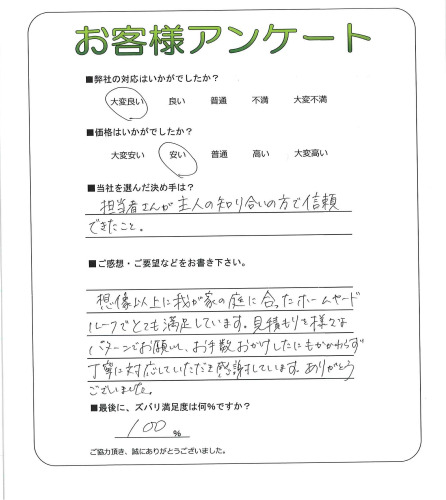 お客様アンケート
■弊社の対応はいかがでしたか？
大変良い 良い 普通 不満 大変不満
■価格はいかがでしたか？
大変安い 安い 普通 高い 大変高い
■当社を選んだ決め手は？
担当者さんが主人の知り合いの方で信頼
できたこと。
■ご感想・ご要望などをお書き下さい。
想像以上に我が家の庭に合ったホームヤード
ルーフでとても満足しています。見積もりを様々な
パターンでお願いし、お手数おかけしたにもかかわらず
丁寧に対応していただき感謝しています。ありがとう
ございました。
■最後に、ズバリ満足度は何%ですか？
100 %
ご協力頂き、誠にありがとうございました。